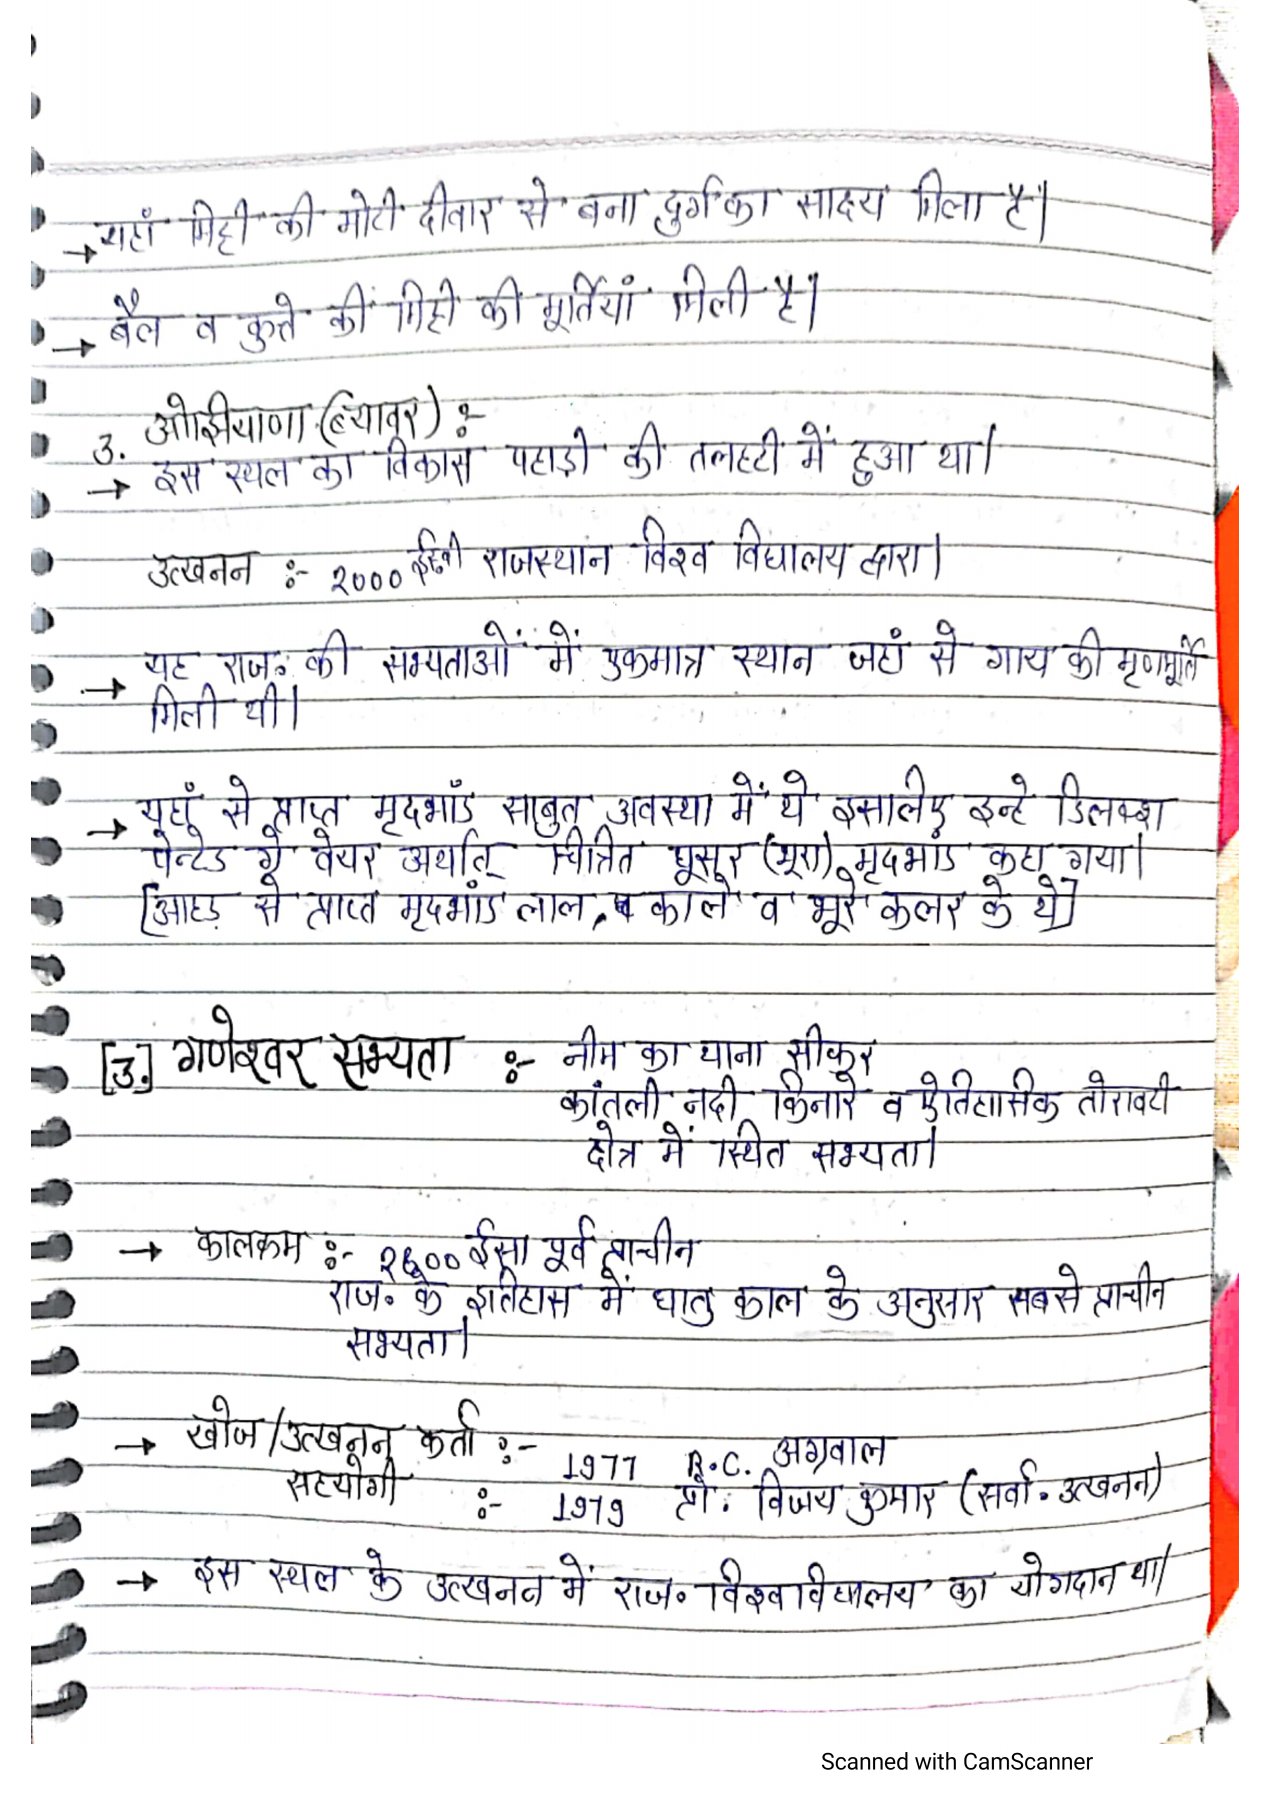 → यहाँ मिट्टी की मोटी दीवार से बना दुर्ग का साक्ष्य मिला है।
→ बैल व कुत्ते की मिट्टी की मूर्तियां मिली है।
3. ओझियाणा (ब्यावर) :-
→ इस स्थल का विकास पहाड़ी की तलहटी में हुआ था।
उत्खनन :- 2000 ईस्वी राजस्थान विश्व विद्यालय द्वारा।
→ यह राज॰ की सभ्यताओं में एकमात्र स्थान जहां से गाय की मृणमूर्ति
मिली थी।
→ यहाँ से प्राप्त मृदभांड साबुत अवस्था में थे इसलिए इन्हे डिलक्श
पेन्टेड ग्रे वेयर अर्थात् चित्रित धूसर (भूरा) मृदभांड कहा गया।
[आहड़ से प्राप्त मृदभांड लाल, काले व भूरे कलर के थे]
[3.] गणेश्वर सभ्यता :- नीम का थाना सीकर
कांतली नदी किनारे व ऐतिहासिक तोरावटी
क्षेत्र में स्थित सभ्यता।
→ कालक्रम :- 2800 ईसा पूर्व प्राचीन
राज॰ के इतिहास में धातु काल के अनुसार सबसे प्राचीन
सभ्यता।
→ खोज/उत्खनन कर्ता :- 1977 R.C. अग्रवाल
सहयोगी :- 1979 प्रो. विजय कुमार (सर्वा॰ उत्खनन)
→ इस स्थल के उत्खनन में राज॰ विश्वविद्यालय का योगदान था।
Scanned with CamScanner